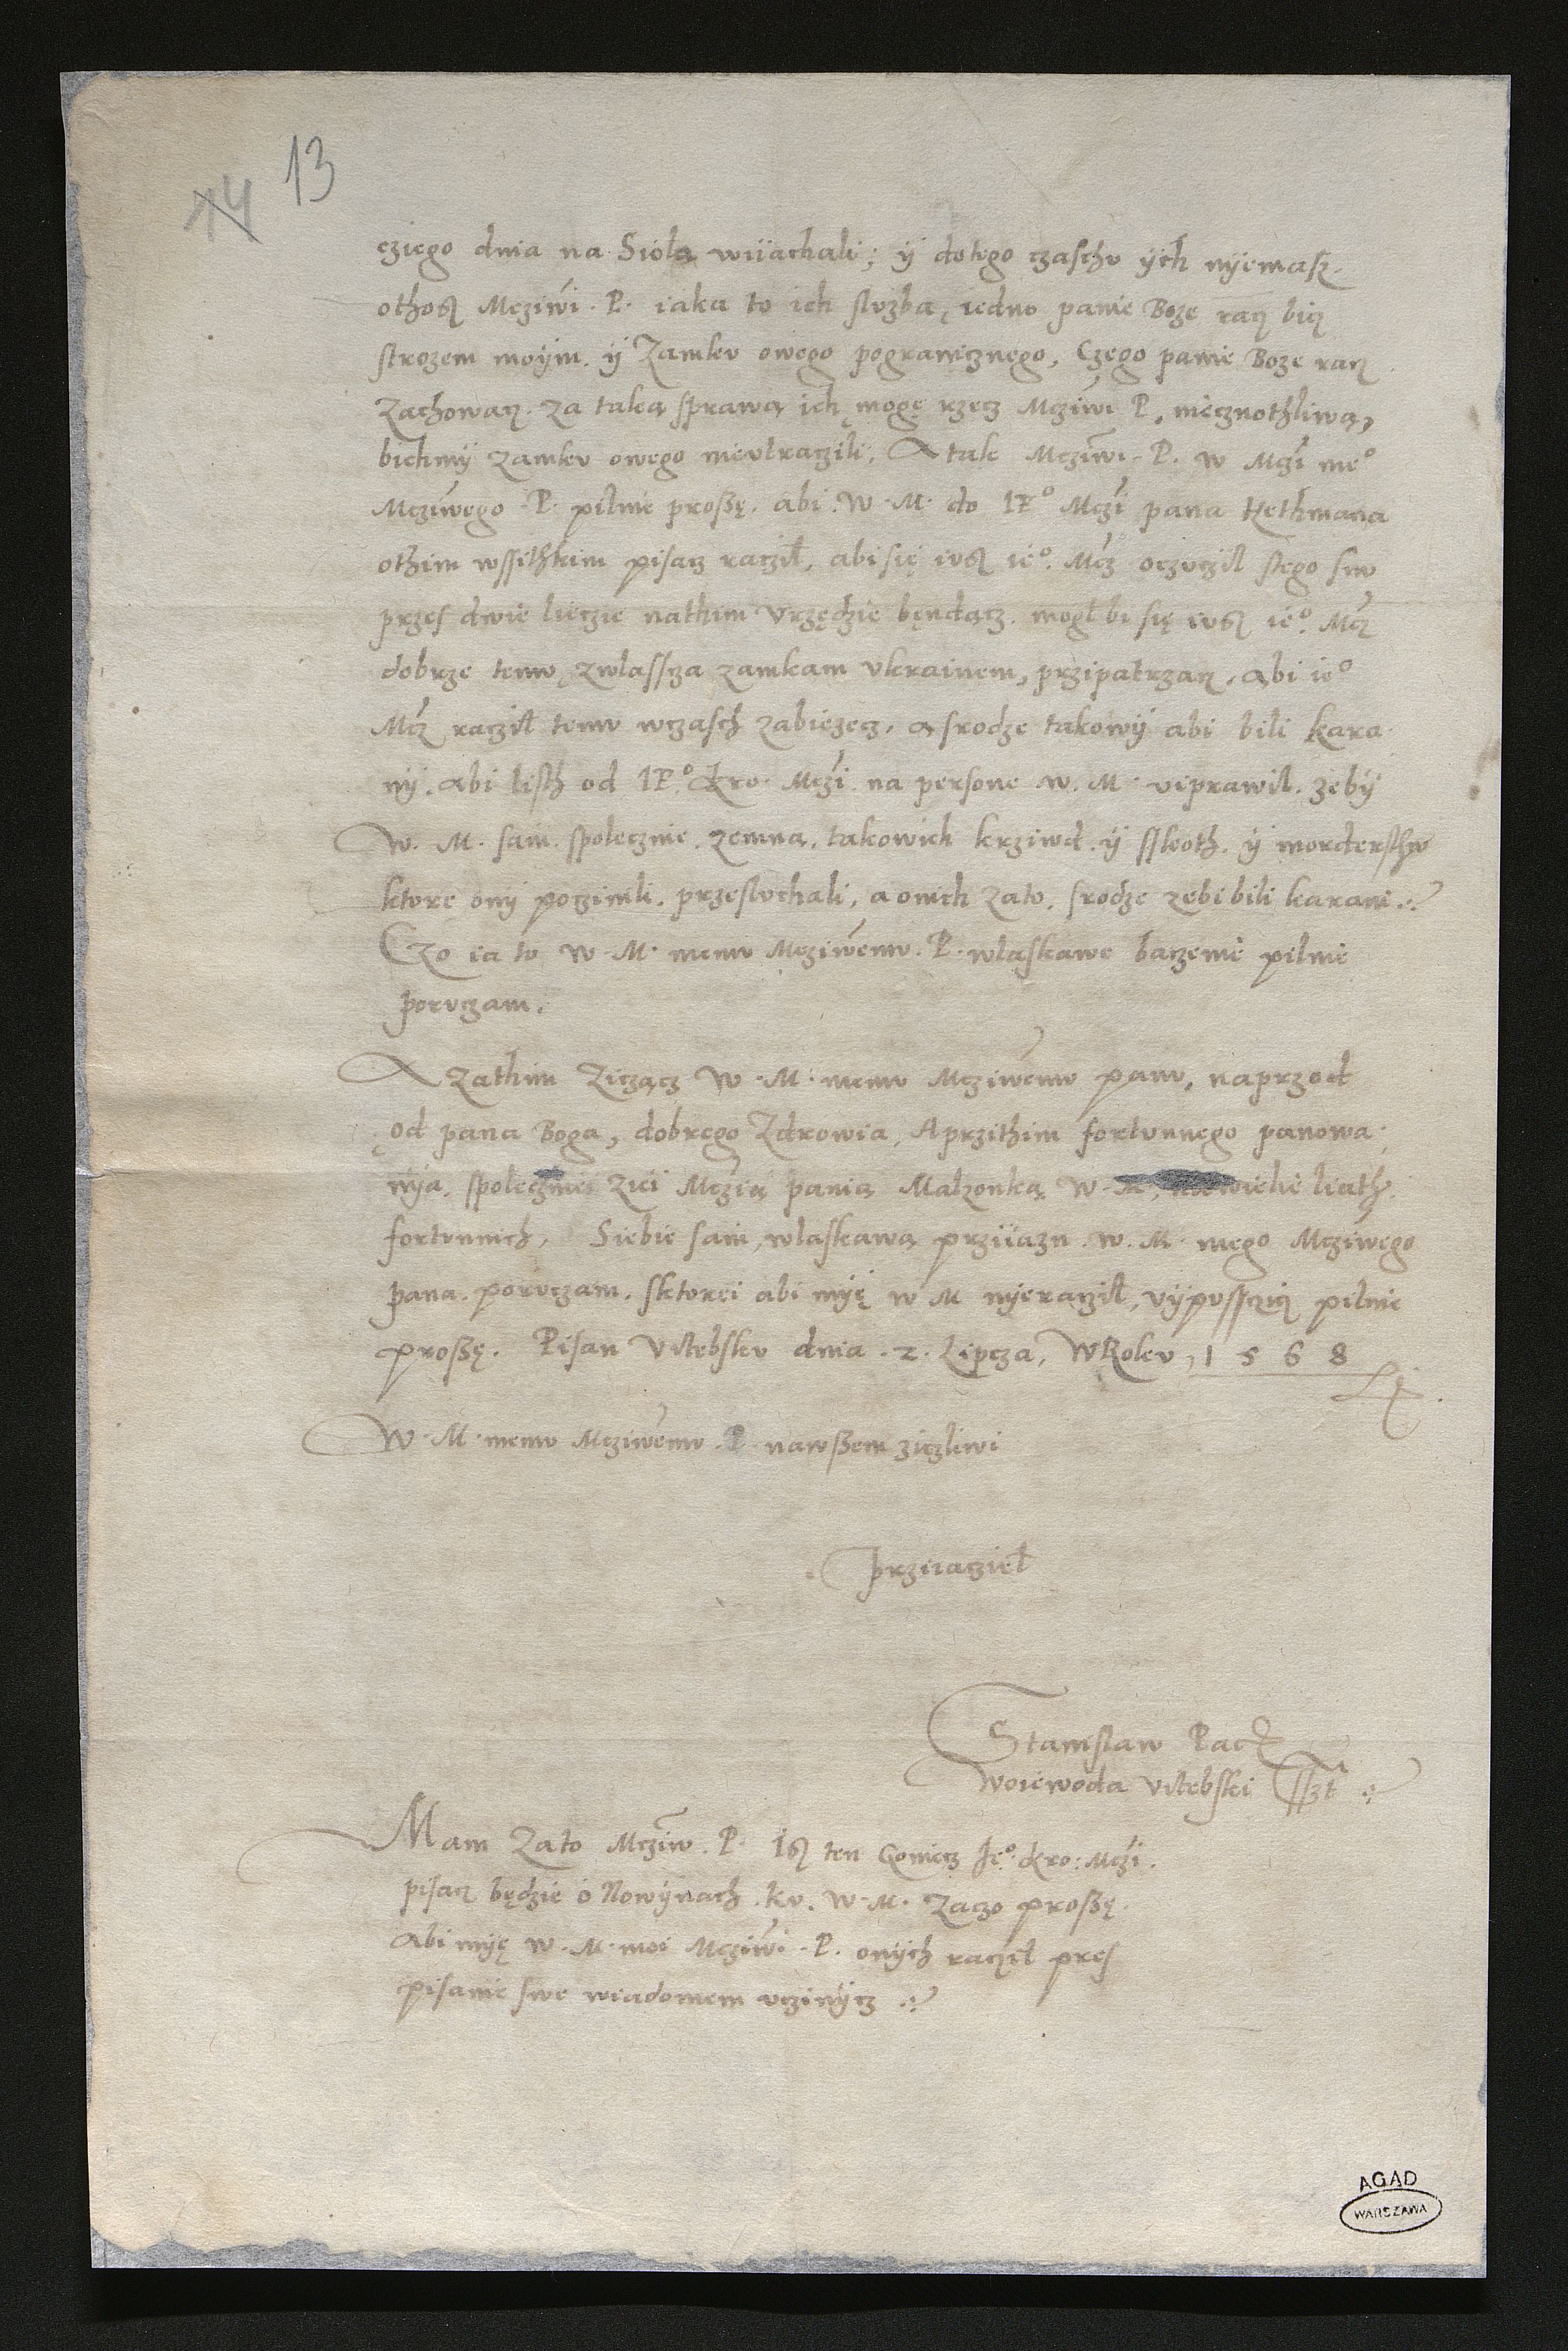 14 13
cziego dnia na Siola wiiachali; ÿ dotego czaschu ÿch nÿemasz.
othosz Mcziwi. P. iaka to ich sluzba, iedno panie Boze racz bicz
strozem moÿm. ÿ Zamku owego pogranicznego, Czego panie Boze racz
Zachowacz. za taką sprawą ich mogę rzecz Mcziwi P, niecznothliwą,
bichmÿ zamku owego nieutraczili. A tak Mcziwi. P. w Mczi me°
Mcziwego P. pilnie proszę. abi. W. M. do IE° Mczi pana Hethmana
othim wssithkim pisacz raczil, abi się iusz ie°. Mcz oczuczil stego snu
przes dwie liecie nathim Urzędzie będącz. mogl bi się iusz ie°. Mcz
dobrze temu, zwlascza zamkam Ukrainem, przipatrzacz, abi ie°
Mcz raczil temu wczasch zabiezecz, a srodze takowÿ abi bili kara
nÿ. abi listh od IE°. kro. Mczi na persone w. M. viprawil. zebÿ
W. M. sam. spolecznie. zemną, takowich krziwd. ÿ sskoth. ÿ morderstw
ktore onÿ poczinili. przesluchali, a onich zato. srodze zebi bili karani.
Czo ia to W. M. memu Mcziwemu. P. wlaskawe baczenie pilnie
poruczam.
A zathim Ziczącz W. M. memu Mcziwemu panu, naprzod
od pana Boga, dobrego Zdrowia, A przithim fortunnego panowa
nÿa. spolecznei Zici Mczią panią Malzonką W. M, wiele liath.
fortunnich, Siebie sam, wlaskawą prziiazn. w. M. mego Mcziwego
pana. poruczam. sktorei abi mÿę w M nÿeraczil, vÿpussczicz pilnie
proszę. Pisan Vitebsku dnia. 2. Lipcza, WRoku, 1 5 6 8
W. M. memu Mcziwemu. P. nawszem ziczliwi
prziiacziel
Stanislaw Pacz
Woiewoda Vitebski
Mam Zato Mcziw. P. Isz ten Goniecz Ie°. kro: Mczi.
pisacz będzie o Nowÿnach. ku. W. M. Zaczo proszę.
Abi mÿę W. M. moi Mcziwi. P. onÿch raczil pres
pisanie swe wiadomem uczinÿcz
AGAD
WARSZAWA